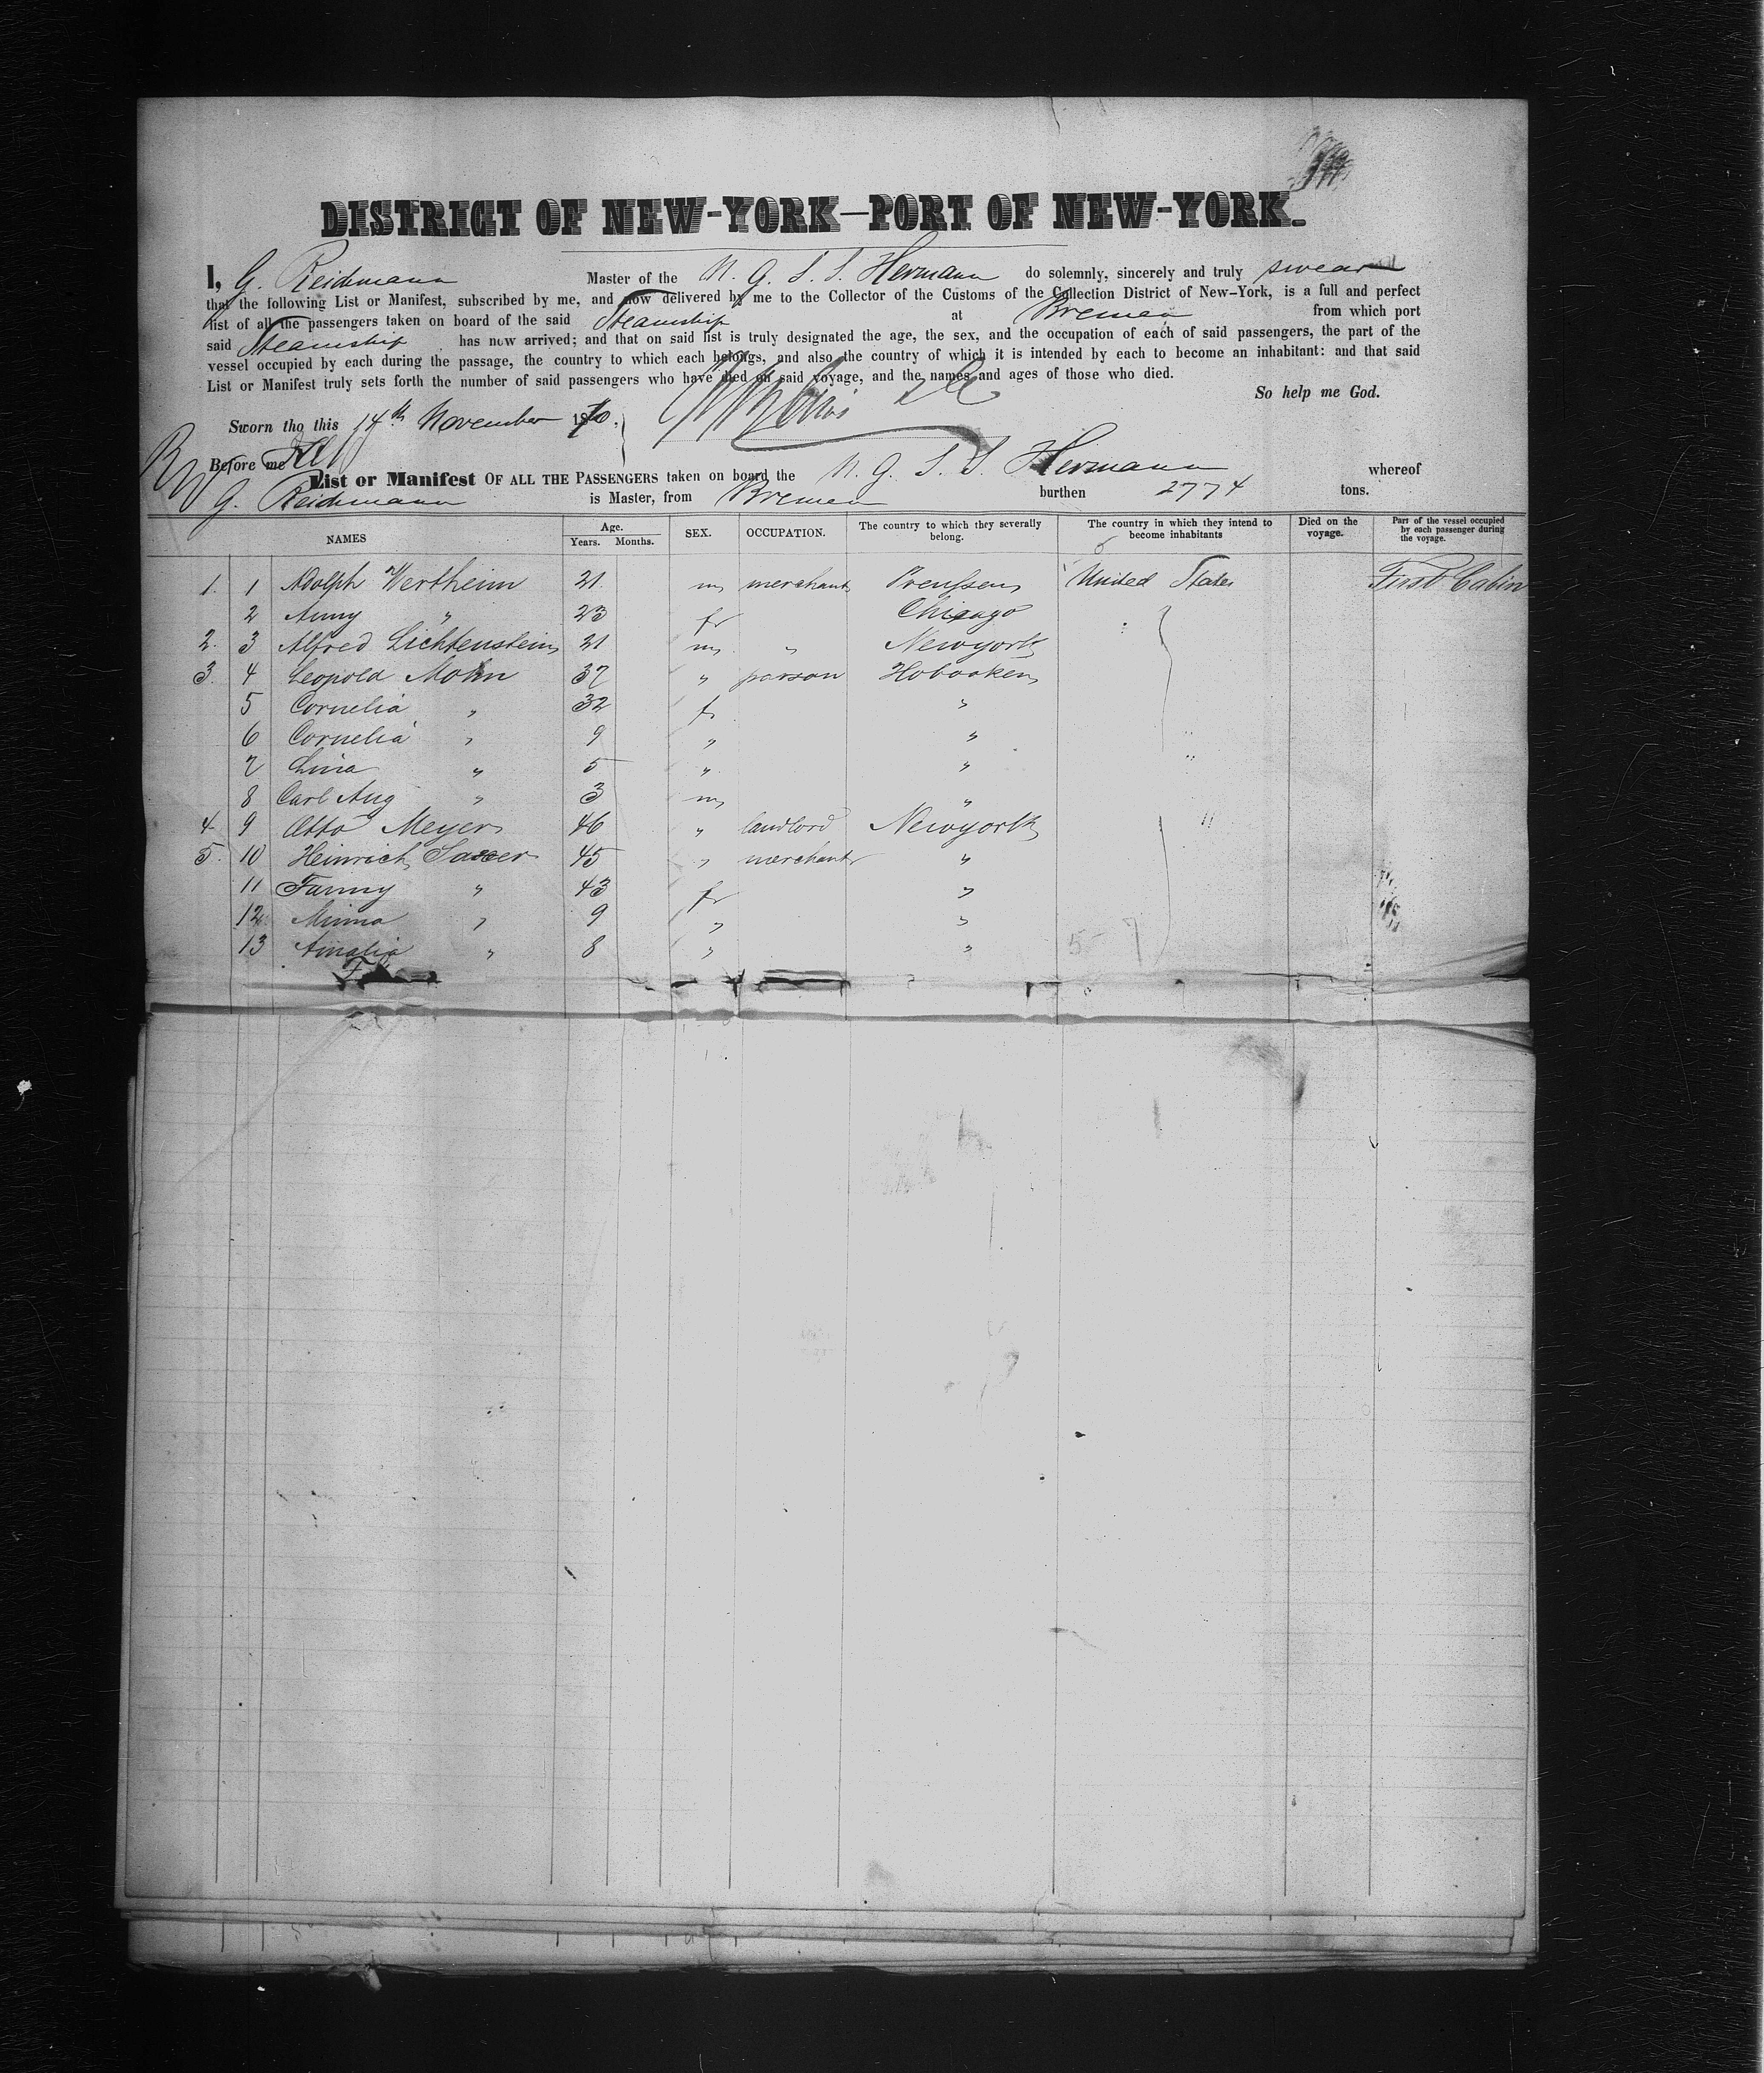 DISTRICT OF NEW-YORK—PORT OF NEW-YORK.
I, G. Reichmann Master of the N. G. S. S. Hermann do solemnly, sincerely and truly swear
that the following List or Manifest, subscribed by me, and now delivered by me to the Collector of the Customs of the Collection District of New-York, is a full and perfect
list of all the passengers taken on board of the said Steamship at Bremen from which port
said Steamship has now arrived; and that on said list is truly designated the age, the sex, and the occupation of each of said passengers, the part of the
vessel occupied by each during the passage, the country to which each belongs, and also the country of which it is intended by each to become an inhabitant: and that said
List or Manifest truly sets forth the number of said passengers who have died on said voyage, and the names and ages of those who died.
So help me God.
Sworn tho this 14th November 1870.
Before me
List or Manifest OF ALL THE PASSENGERS taken on board the N. G. S. S. Hermann whereof
G. Reichmann is Master, from Bremen burthen 2774 tons.
NAMES Age. Years. Months. SEX. OCCUPATION. The country to which they severally belong. The country in which they intend to become inhabitants Died on the voyage. Part of the vessel occupied by each passenger during the voyage.
1. 1 Adolph Wertheim 21. m merchant Preussen United States First Cabin
2 Anny " 23 f Chicago
2. 3 Alfred Lichtenstein 21 m " Newyork
3. 4 Leopold Mohn 37 " parson Hobooken
5 Cornelia " 32 f "
6 Cornelia " 9 " " "
7 Lina " 5 " " "
8 Carl Aug " 3 m "
4. 9 Otto Meyer 46 " landlord Newyork "
5. 10 Heinrich Sasser 45 " merchant "
11 Fanny " 43 f "
12. Minna " 9 " "
13 Amalia " 8 " "